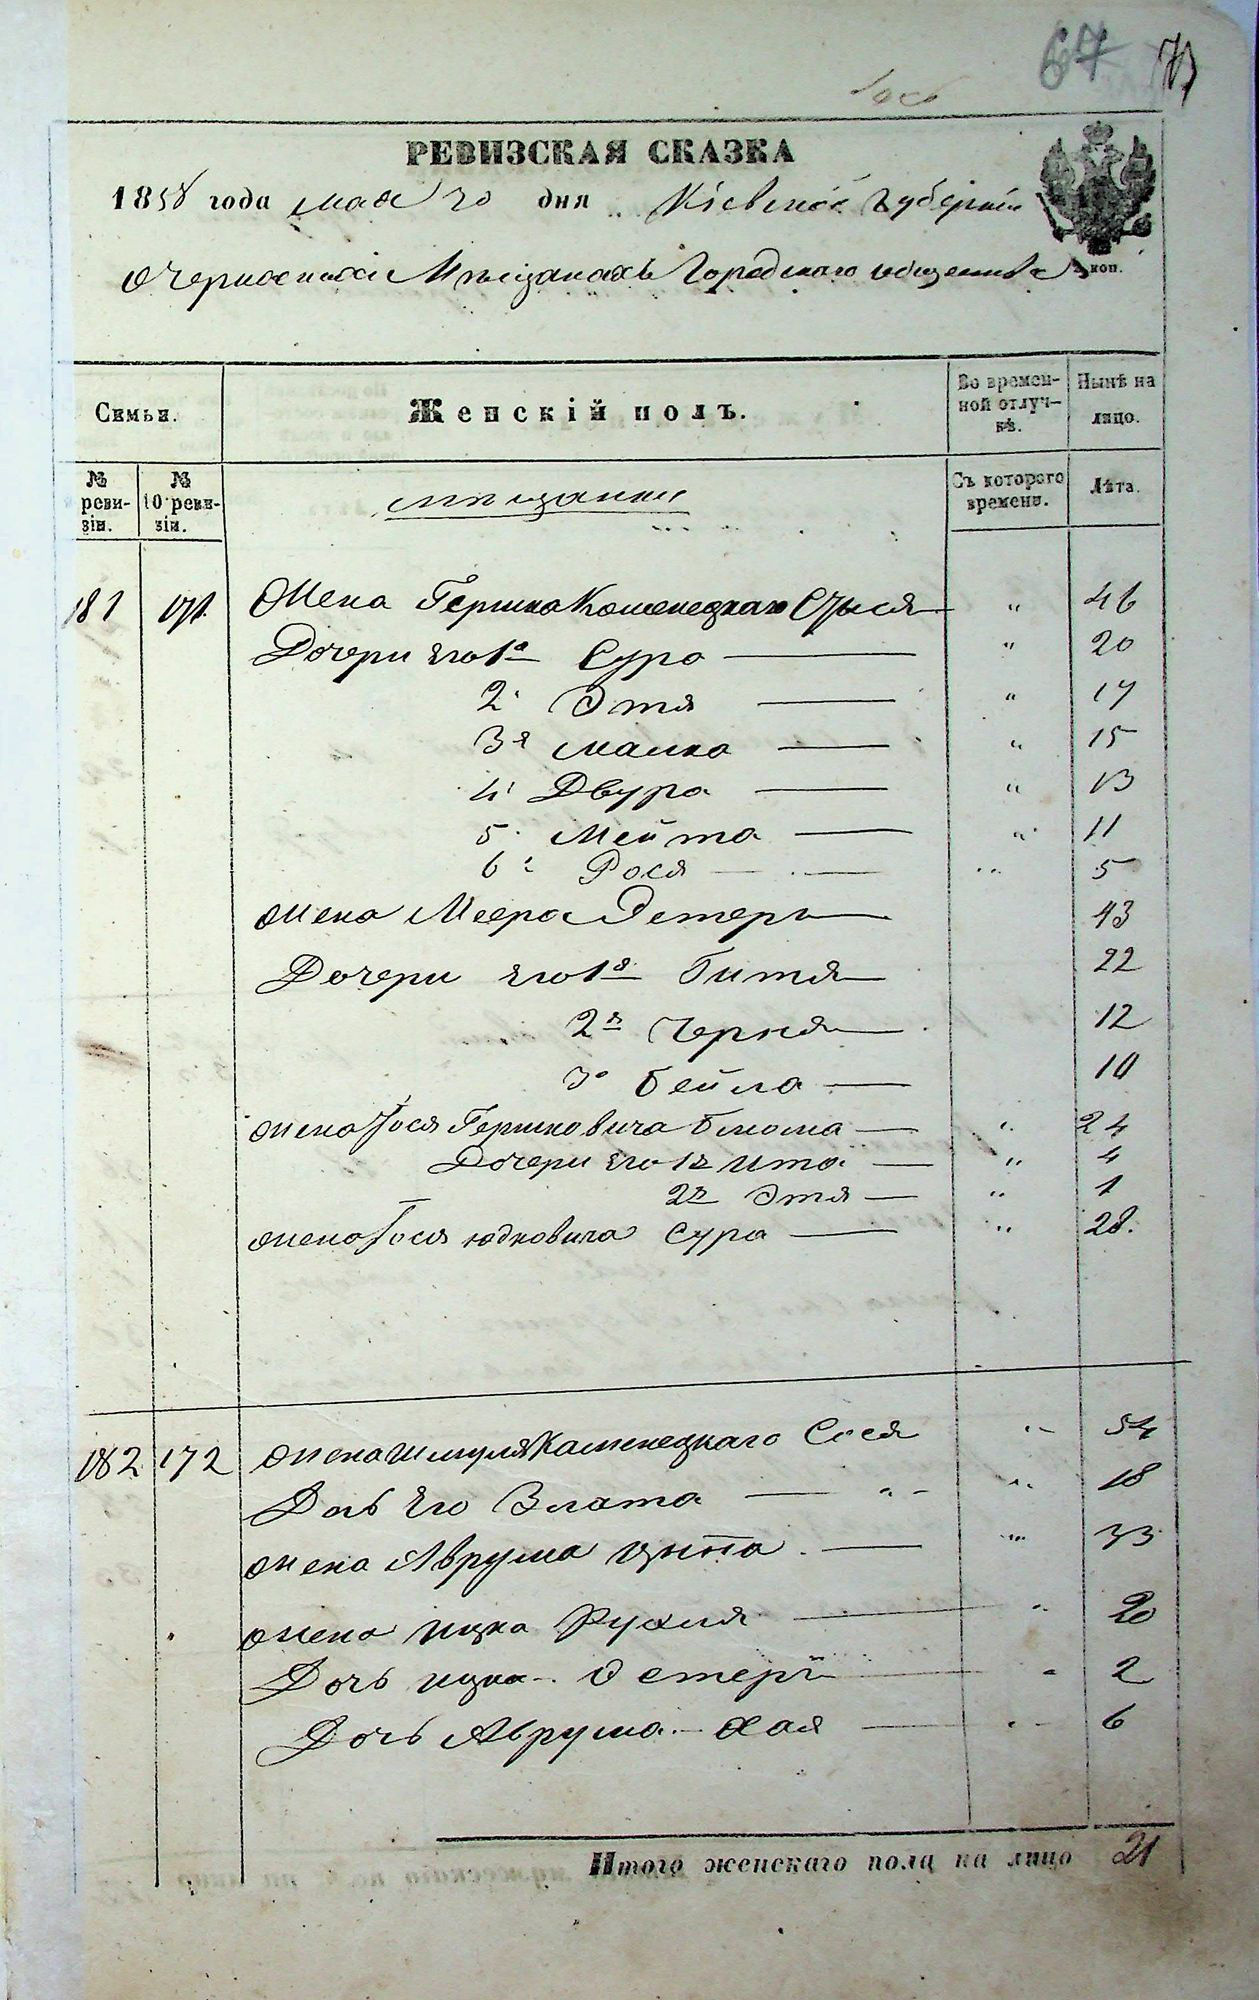 67
РЕВИЗСКАЯ СКАЗКА
1858 года мая 20 дня Кіевской Губерніи
О Мѣщанахъ Городскаго общества
коп.
Семьи.
Женскій полъ.
Во времен-
ной отлуч-
кѣ.
Нынѣ на
лицо.
№
реви-
зіи.
№
10 реви-
зіи.
мѣщанки
Съ котораго
времени.
Лѣта.
181 171 Жена Гершка Каменецкаго Сися " 46
Дочери его 1я Сура " 20
2 Этя " 17
3я Малка " 15
4 Двура " 13
5 Мейта " 11
6 Рося " 5
Жена Меера Эстеръ 43
Дочери его 1я Гитя 22
2я Черня 12
3 Бейла 10
Жена Іося Гершковича Блюма " 24
Дочери его 1я Ита " 4
2я Этя " 1
Жена Іося Юдковича Сура " 28.
182 172 Жена Шмуля Каменецкаго Сося " 54
Дочь Его Злата " 18
Жена Аврума " 33
Жена Ицка Рухля " 20
Дочь Ицка Эстеръ " 2
Дочь Аврума Хая " 6
Итого женскаго пола на лицо 21